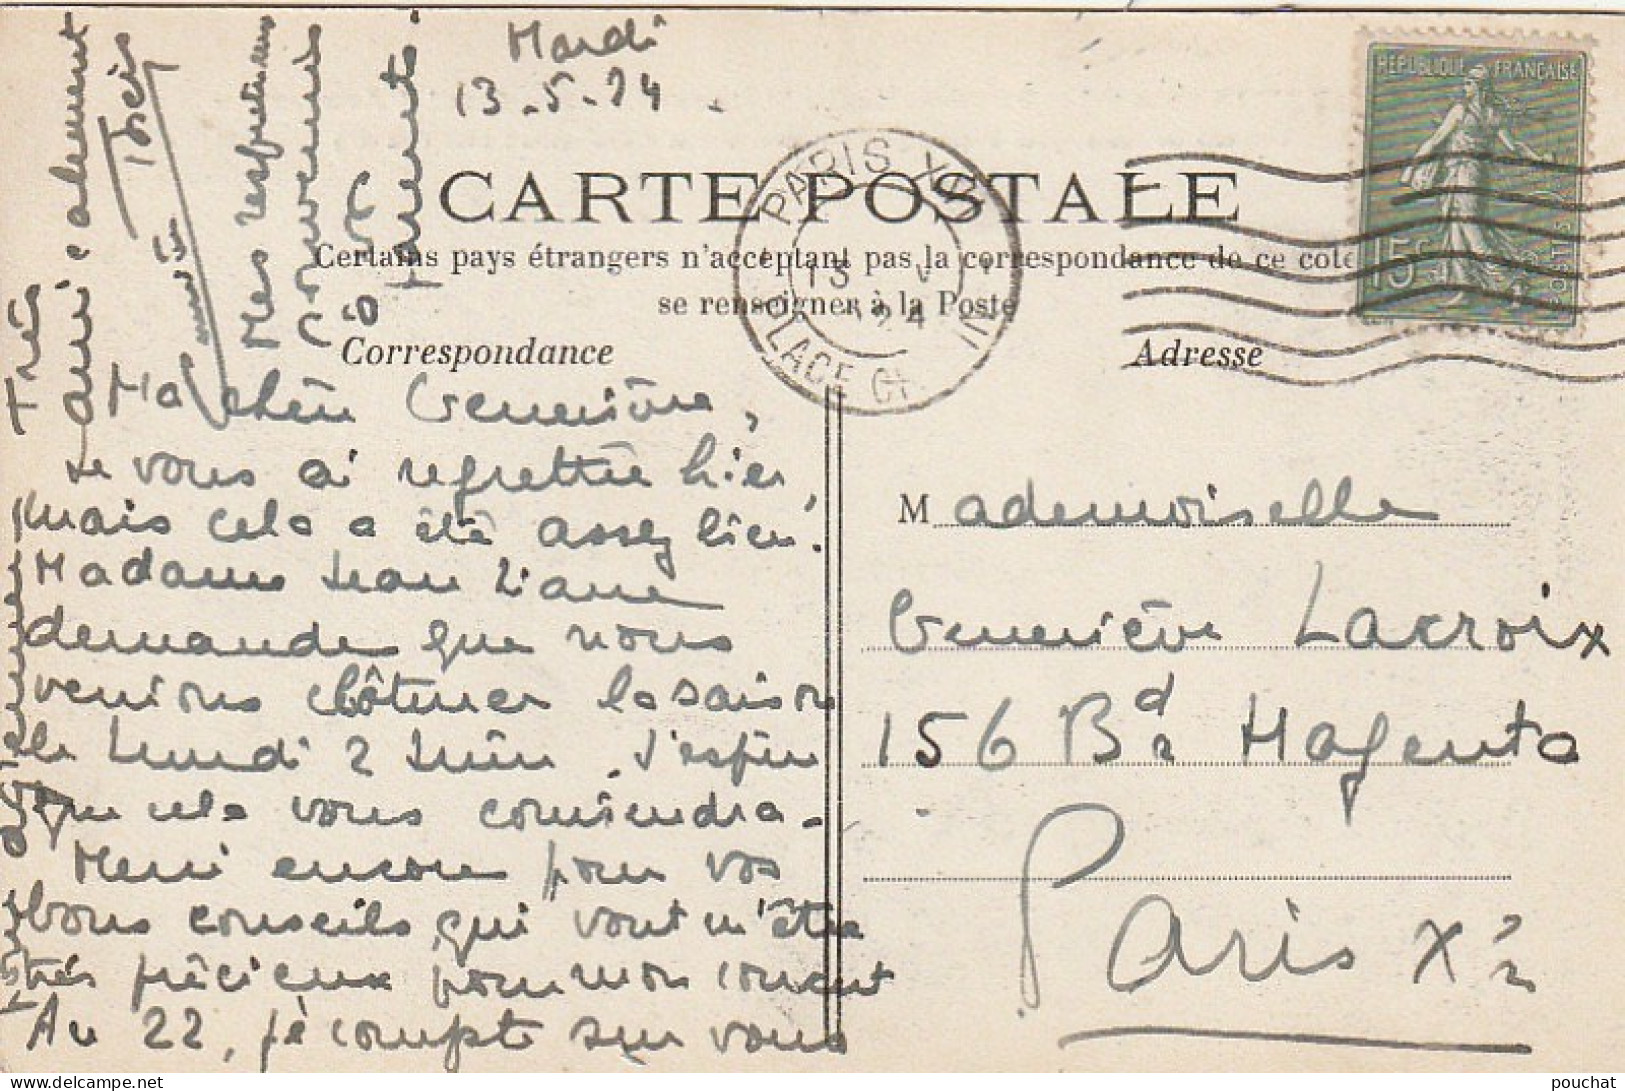 Mardi
13.5.24.
CARTE POSTALE
Certains pays étrangers n'acceptant pas la correspondance de ce côté
se renseigner à la Poste
Correspondance
Adresse
RÉPUBLIQUE FRANÇAISE
15c
POSTES
PARIS X
13 V
24
PLACE CH
Ma chère Geneviève,
Je vous ai regrettée hier,
mais cela a été assez bien.
Madame Jean
demande que nous
venions clôturer la saison
le Lundi 2 Juin. J'espère
que cela vous conviendra.
Merci encore pour vos
bons conseils qui vont m'être
très précieux pour mon concert
Au 22, je compte sur vous
Très
amicalement
Mes respectueux
souvenirs
à vos
Parents.
Mademoiselle
Geneviève Lacroix
156 Bd Magenta
Paris Xe
www.delcampe.net
pouchat